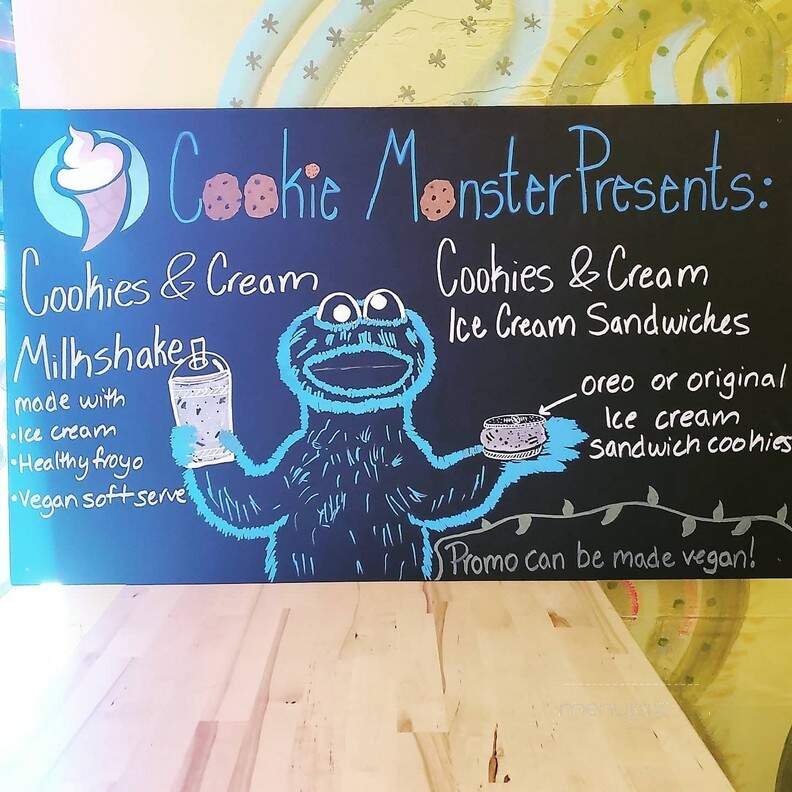 Cookie Monster Presents:
Cookies & Cream
Milkshake
made with
•Ice cream
•Healthy froyo
•Vegan soft serve
Cookies & Cream
Ice Cream Sandwiches
oreo or original
Ice cream
sandwich cookies
Promo can be made vegan!